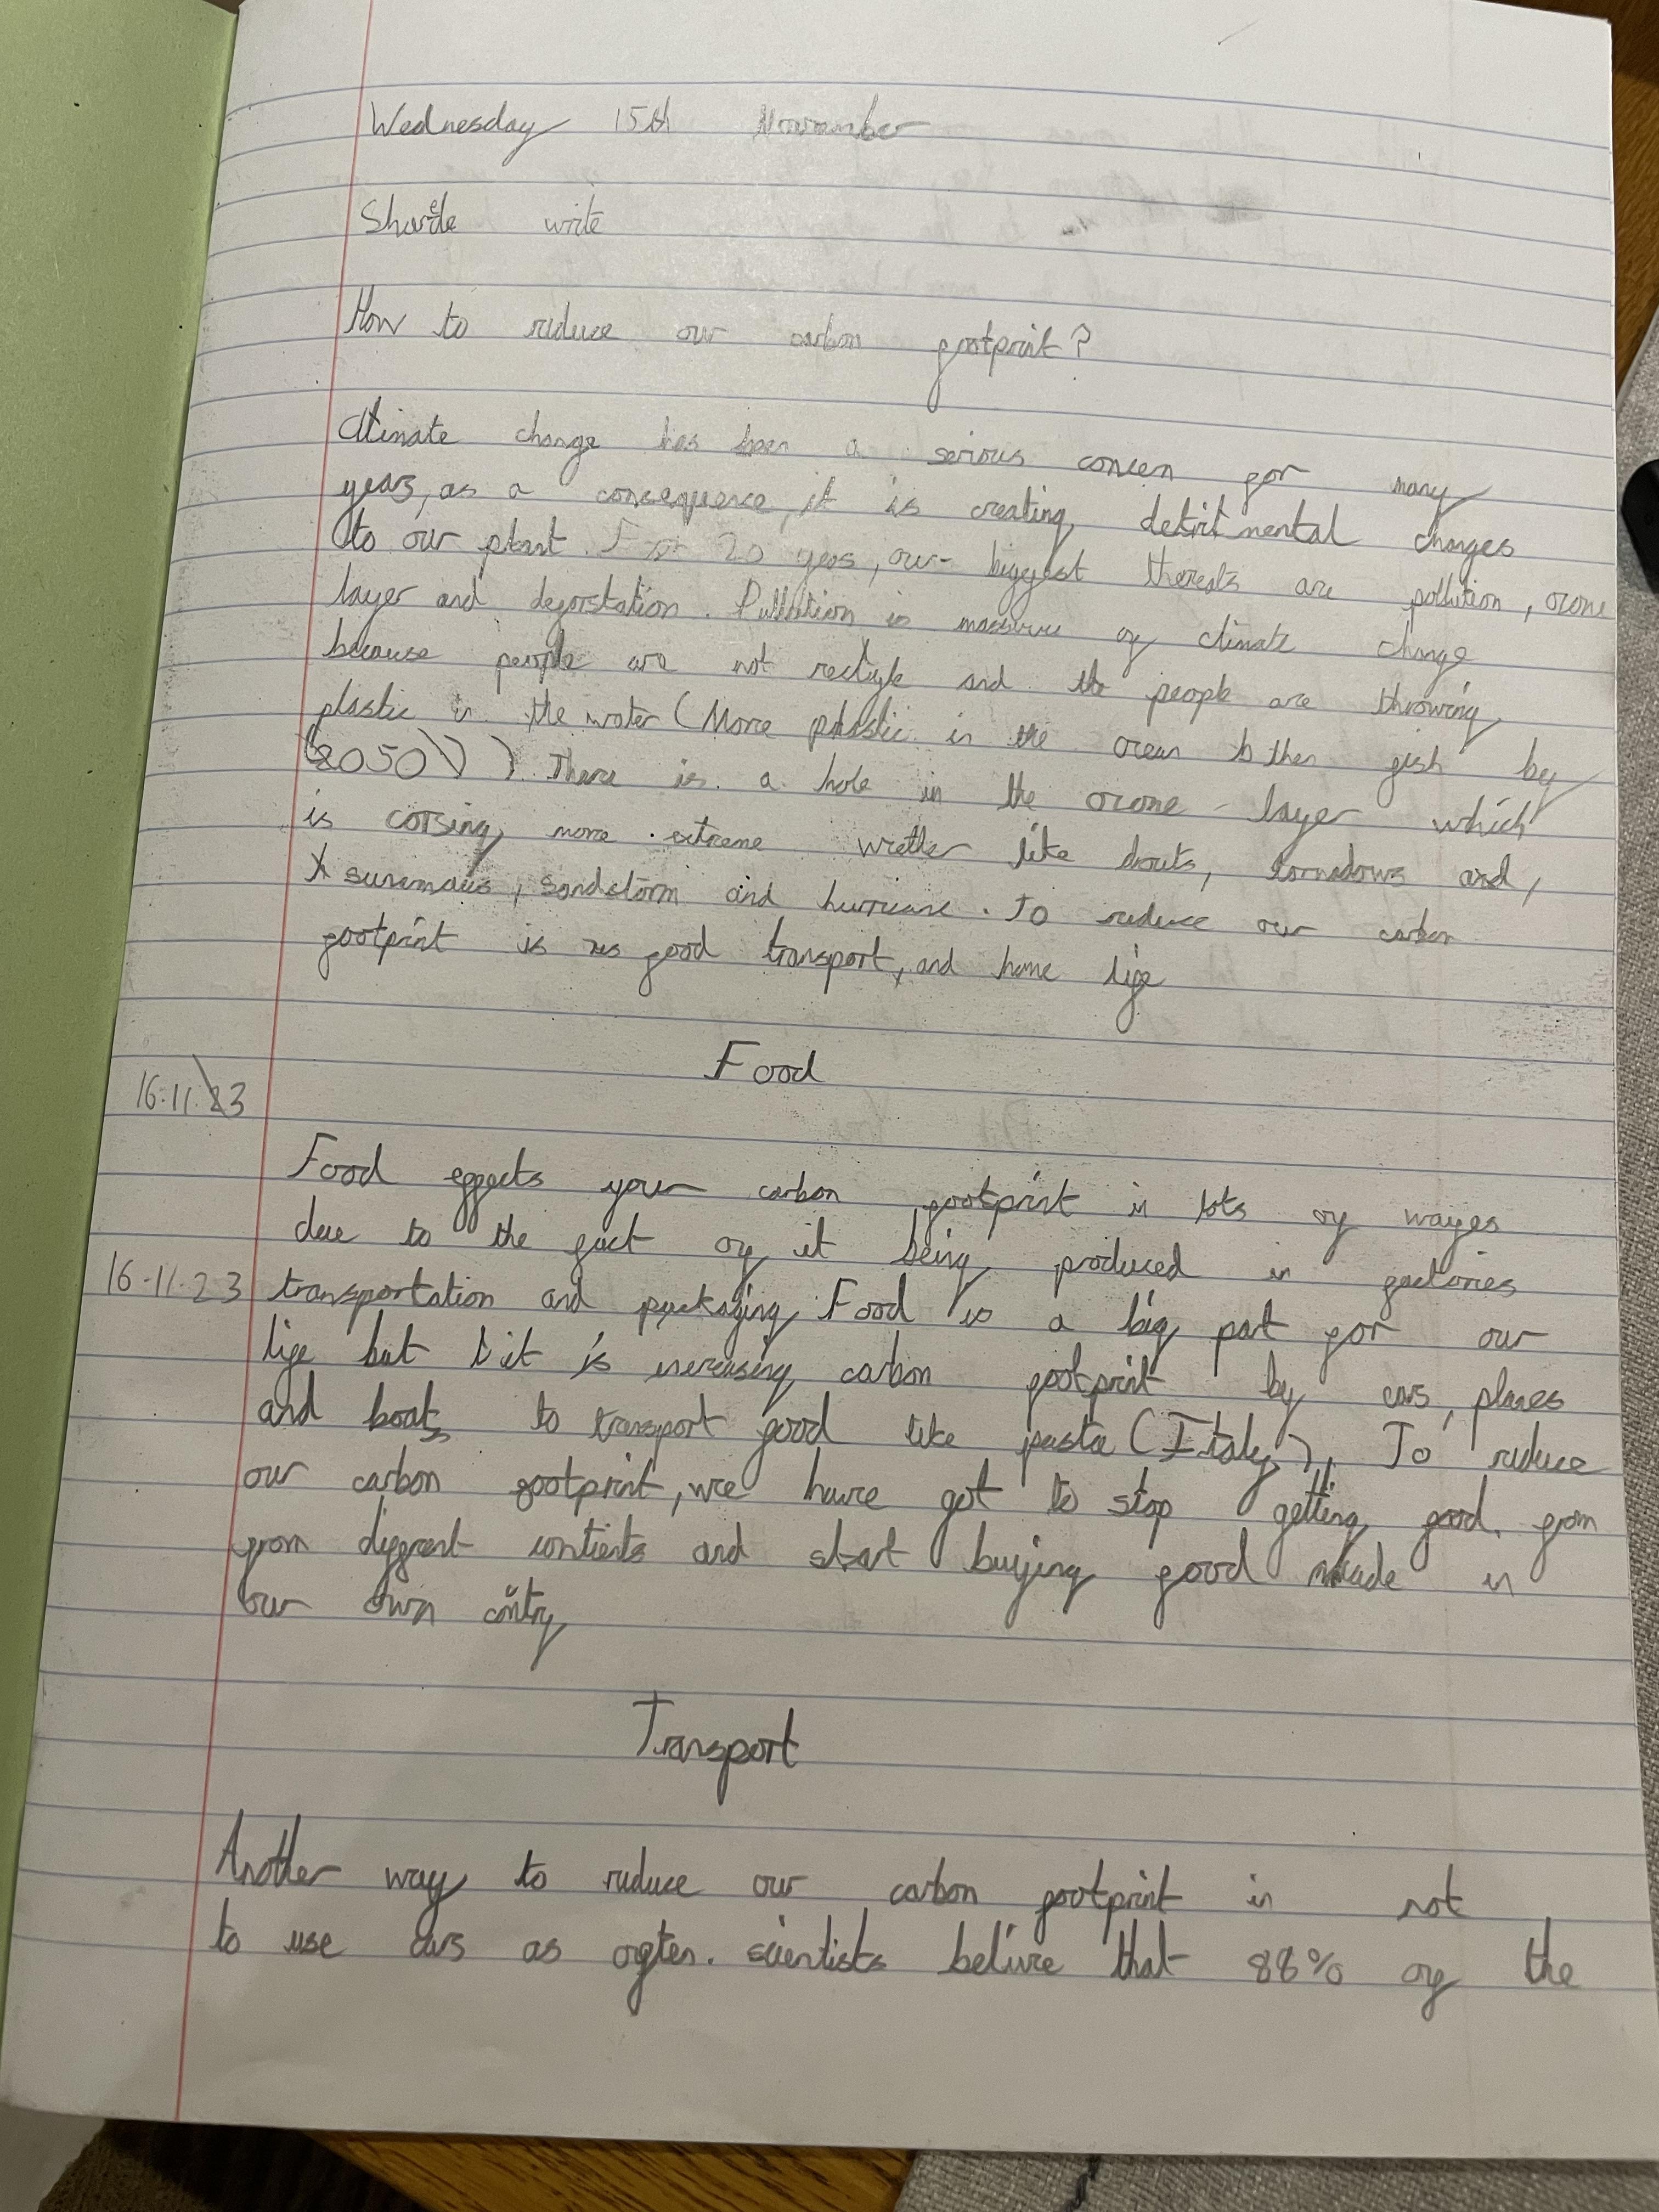 Wednesday 15th November
Sharde write
How to reduce our carbon footprint?
Climate change has been a serious concern for many
years, as a concequence, it is creating detirt mental changes
to our plant. For 20 years, our biggest thereats are pollution, ozone
layer and deforstation. Pullution is massive of climate change
because people are not rectcyle and the people are throwing
plastic in the water (More plastic in the ocean to then fish by
(2050)) There is a hole in the ozone layer which
is corsing more extreme wrether like drouts, tornadows and,
sunamais, sandstorm and hurricane. To reduce our carbon
footprint is food transport, and home life
Food
16.11.23
Food effects your carbon footprint in lots of wayes
due to the fact of it being produced in factories
16-11-23 transportation and packaging Food is a big part for our
life but it is increasing carbon footprint by cars, planes
and boats to transport food like pasta (Italey). To reduce
our carbon footprint, we have got to stop getting food. from
from diffrent contients and start buying food made in
our own contry
Transport
Another way to reduce our carbon footprint is not
to use cars as often. scientists belive that 88% of the